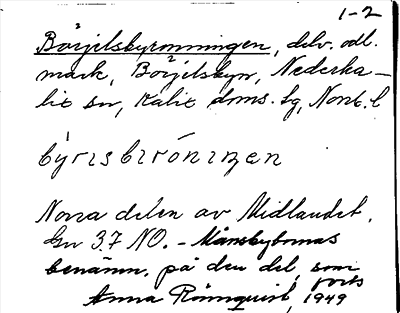 1-2
Börjelsbyrönningen, delv. odl.
mark, Börjelsbyn, Nederka-
lix sn, Kalix doms. lg, Norrb. l
Norra delen av Midlandet.
Gn 37 NO. - Månsbybornas
benämn. på den del, som
Anna Rönnqvist, 1949